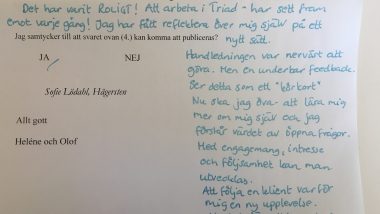 Det har varit ROLIGT! Att arbeta i Triad - har sett fram
emot varje gång! Jag har fått reflektera över mig själv på ett
nytt sätt.
Jag samtycker till att svaret ovan (4.) kan komma att publiceras?
JA NEJ
Sofie Lödahl, Hägersten
Allt gott
Heléne och Olof
Handledningen var nervärt att
göra. Men en underbar feedback.
Ser detta som ett "körkort"
Nu ska jag öva - att lära mig
mer om mig själv och jag
förstår värdet av öppna frågor.
Med engagemang, intresse
och följsamhet kan man
utvecklas.
Att följa en klient var för
mig en ny upplevelse.